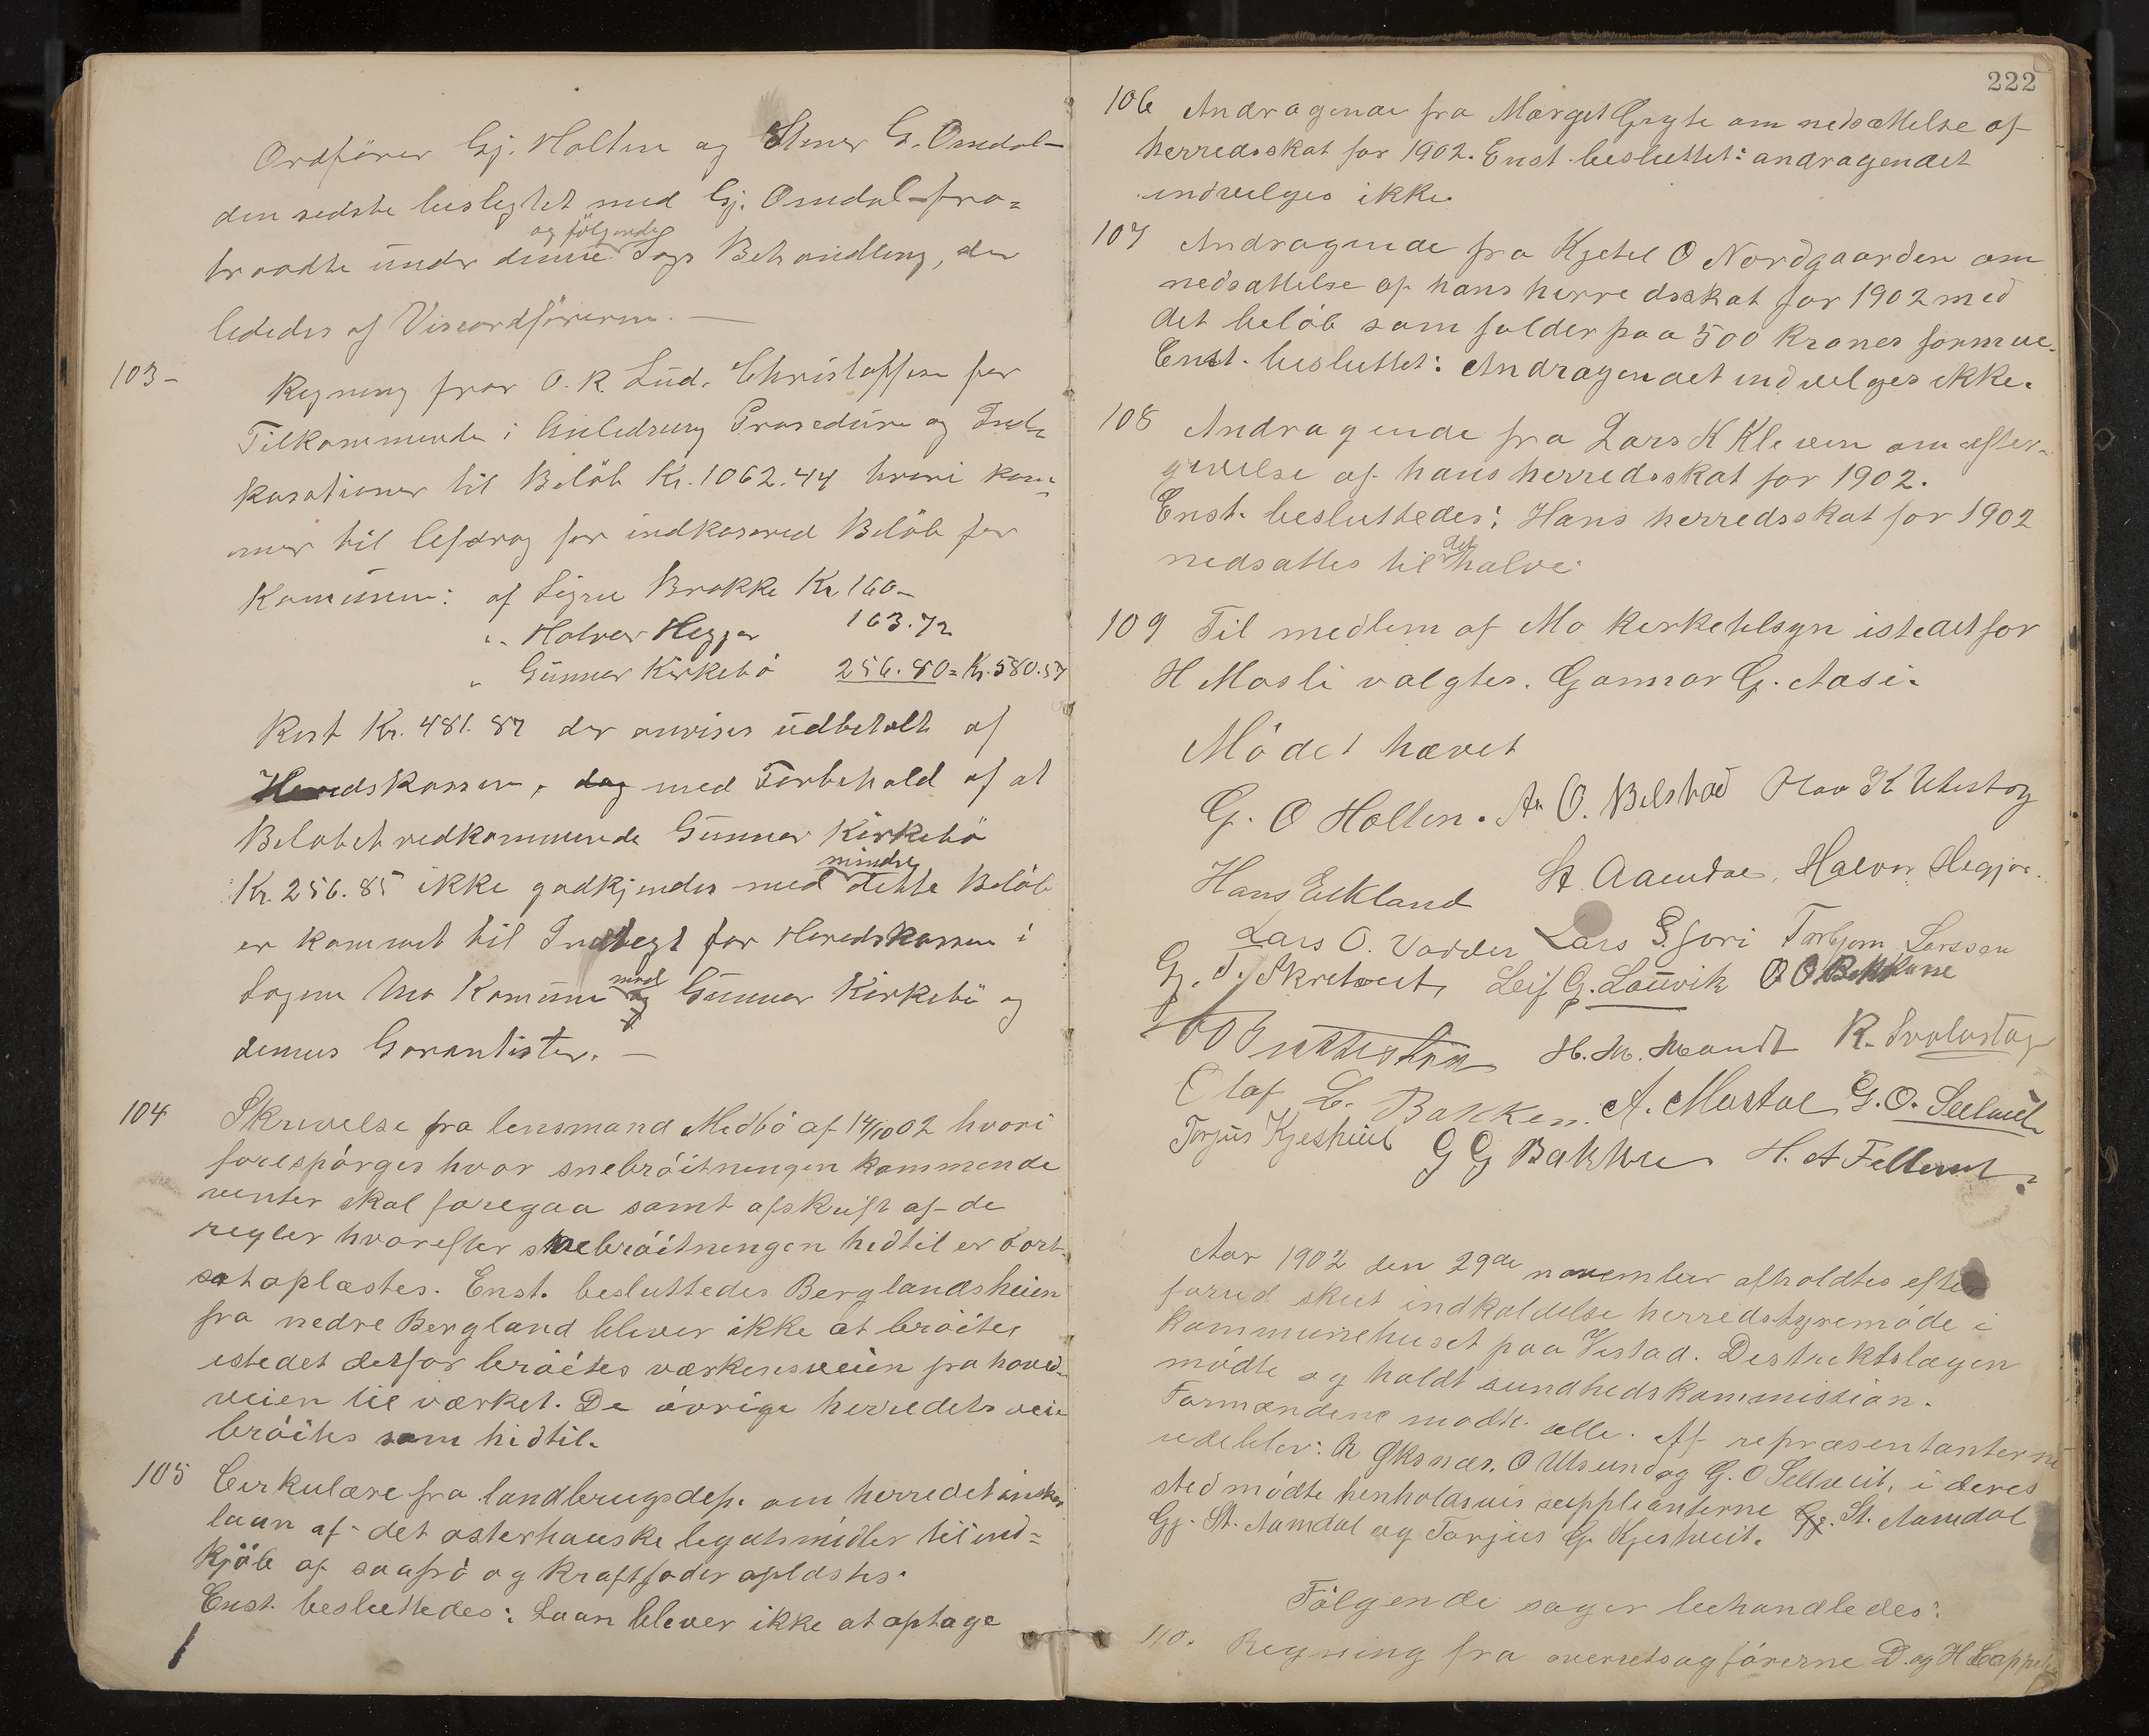 Ordförer Gj. Holten og Stener G. Omdal-
den sidste beslegtet med Gj. Omdal - fra=
og følgende
traadte under denne Sags Behandling, der
lededes af Viseordföreren. —
103- Regning fra O. R. Lud. Christoffersen for
Tilkommende i Anledning Prosedüre og Ind-
kasationer til Belöb Kr. 1062.44 hvori kom-
mer til Afdrag for indkasered Belöb for
Kommunen: af Signe Brokke Kr 160-
" Halvor Heggar 163.72
" Günnar Kirkebö 256.80 = Kr. 580.57
Rest Kr. 481.87 der anvises üdbetalt af
Heredskassen, dog med Forbehold af at
Beløbet vedkommende Günnar Kirkebö
mindre
Kr. 256.85 ikke godkjendes med dette Beløb
er kommet til Indtegt for Heredskassen i
mod
Sagen Mo Komüne og Günnar Kirkebö og
dennes Garantister. —
104 Skrivelse fra lensmand Medbö af 14/10 02 hvori
forespörges hvor snebröitningen kommende
vinter skal foregaa samt afskrift af de
regler hvorefter snebröitningen hidtil er bort-
sat oplæstes. Enst. besluttedes Berglandsheien
fra nedre Bergland bliver ikke at bröites
istedet derfor bröites værkensveien fra hoved-
veien til værket. De övrige herredets veie
bröites som hidtil.
105 Cirkulære fra landbrugsdep. om herredet önsker
laan af det osterhauske legatsmidler til ind=
kjöb af saafrö og kraftfoder oplæstes.
Enst. besluttedes: Laan blever ikke at optage
222
106 Andragende fra Margit Gryte om nedsættelse af
herredsskat for 1902. Enst. besluttet: andragendet
indvilges ikke.
107 Andragende fra Kjetil O Nordgaarden om
nedsættelse af hans herredsskat for 1902 med
det belöb som falder paa 500 kroner formue.
Enst. besluttet: Andragendet indvilges ikke.
108 Andragende fra Lars K Kleven om efter-
givelse af hans herredsskat for 1902.
Enst. besluttedes: Hans herredsskat for 1902
det
nedsattes til halve.
109 Til medlem af Mo kirketilsyn istedetfor
H Mosli valgtes. Gunnar G. Aasi.
Mödet hævet
G. O Holten. A. O. Belstad Olav K Utistog
Hans Eikland St. Aamdal, Halvor Hegjar.
Lars O. Vadder Lars S. Jori Torbjorn Larssen
G. T. Skretveit, Leif G. Lauvik O O Bakkane
H. M. Mandt R. Svalastog
Olaf L. Bakken. A. Mostøl G. O. Seltveit
Torjus Kjestveit G G Bakken H. A Felland.
Aar 1902 den 29de november afholdtes efter
forud skeet indkaldelse herredstyremöde i
kommunehuset paa Vistad. Distriktslægen
mödte og holdt sundhedskommission.
Formændene mödte alle. Af repræsentanterne
udeblev: R Øksnæs. O Utsund og G. O Seltveit, i deres
sted mödte henholdsvis supplianterne Gj. St. Aamdal
Gj. St. Aamdal og Torjus G. Kjestveit.
Fölgende sager behandledes:
110. Regning fra overretsagförerne D. og H Cappelen